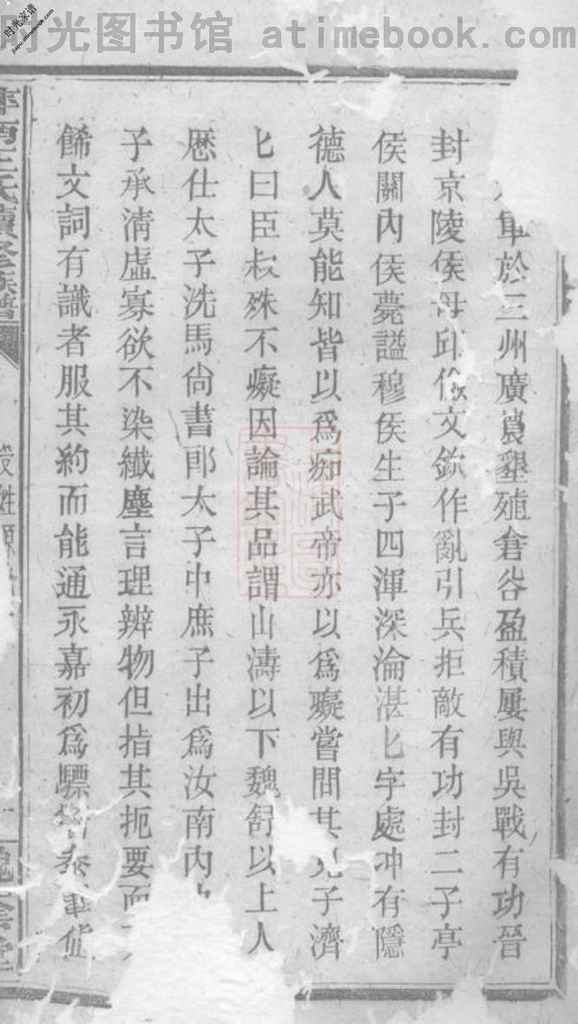 时光图书馆 atimebook.com
軍於三州廣農墾殖倉谷盈積屢與吳戰有功晉
封京陵侯母邱儉文欽作亂引兵拒敵有功封二子亭
侯關內侯薨謚穆侯生子四渾深淪湛湛字處冲有隱
德人莫能知皆以爲痴武帝亦以爲癡嘗問其兄子濟
匕曰臣叔殊不癡因論其品謂山濤以下魏舒以上人
歷仕太子洗馬尙書郎太子中庶子出爲汝南內
子承淸虛寡欲不染纖塵言理辨物但指其扼要而
餙文詞有識者服其約而能通永嘉初爲驃
王氏續修族譜